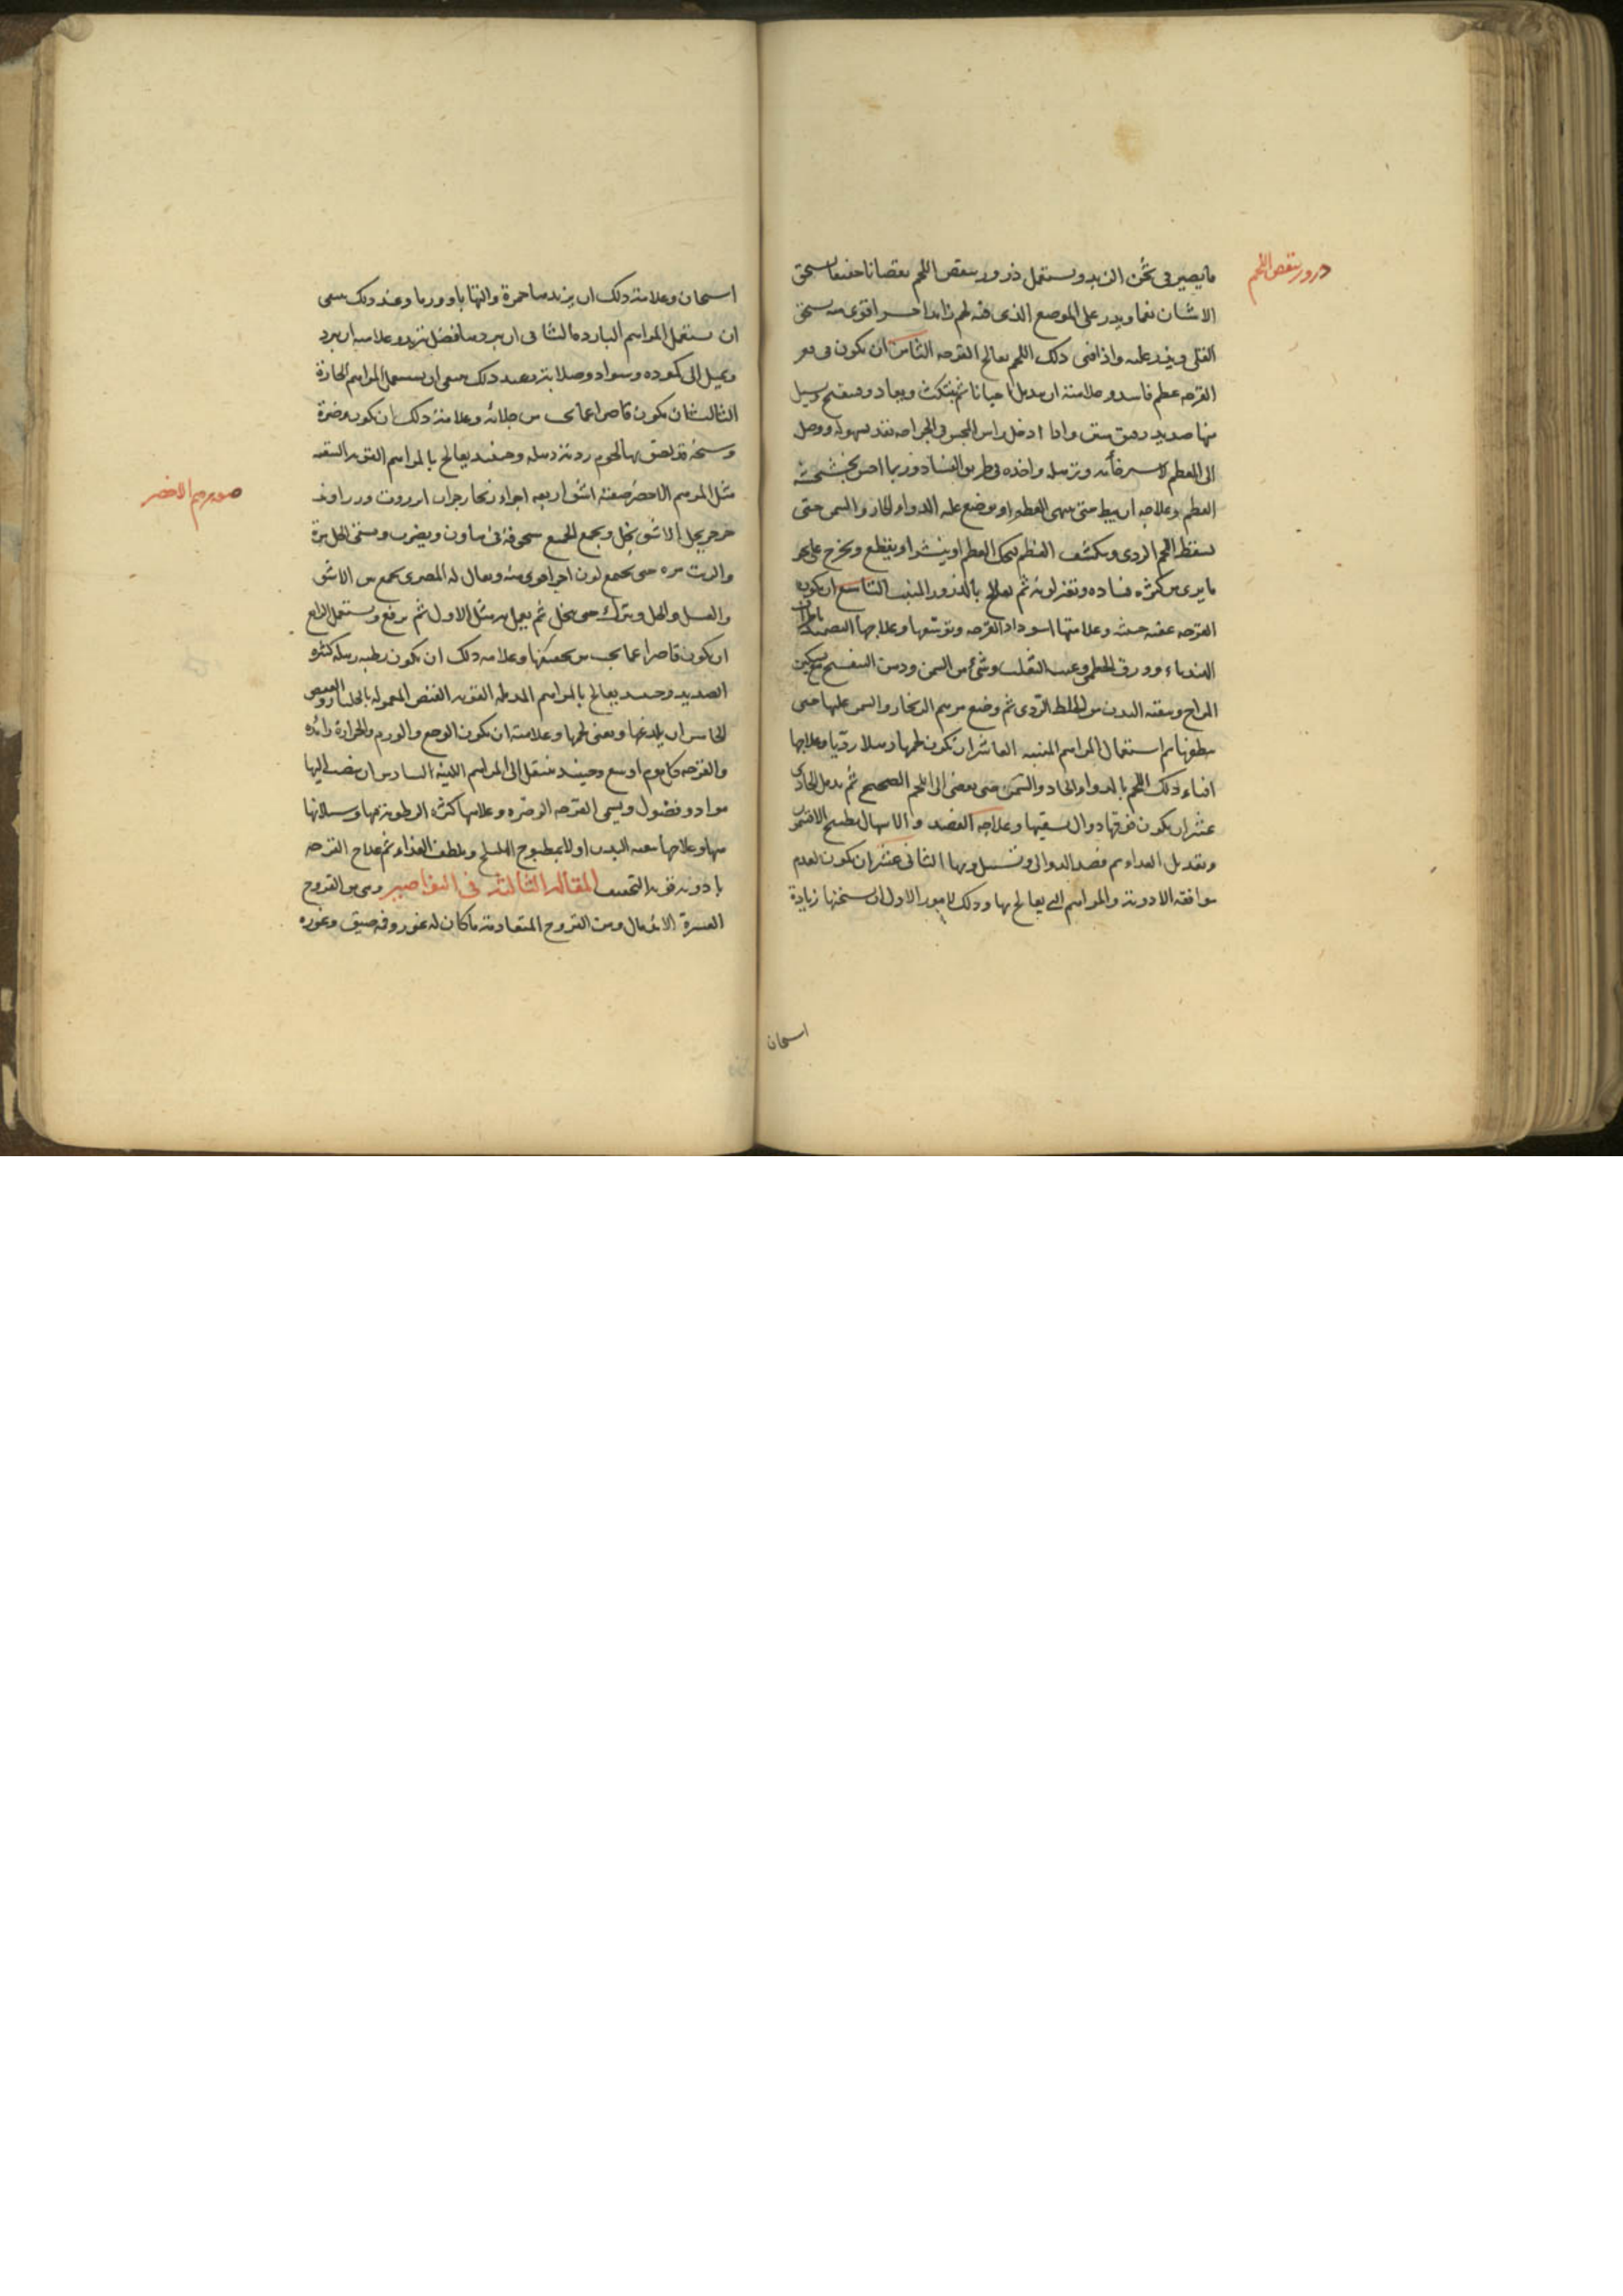 درور ينقص اللحم
ما يصير فى ثخن الزبد ويستعمل ذرور ينقص اللحم نقصانا خفيفا يسحق
الاشنان نعما ويذر على الموضع الذى فيه لحم زايد اخر اقوى منه يسحق
القلى ويذر عليه واذا فنى ذلك اللحم يعالج القرحه الثامن ان يكون فى قعر
القرحه عظم فاسد وعلامته ان يندمل احيانا ثم ينتكث ويعاد وينفتح ويسيل
منها صديد رقيق منتن واذا ادخل راس المجس فى الجراحه نفذ بسهوله ووصل
الى العظم واخذه فى طريق الفساد وربما احس بخشخشة
العظم وعلاجه ان يبط حتى ينتهى العظم او يوضع عليه الدواء الحاد والسمن حتى
يسقط اللحم الردى وينكشف العظم فيحك العظم او ينشر او يقطع ويخرج على نحو
ما يرى من كثرة فساده وتغير لونه ثم يعالج بالذرور المنبت التاسع ان يكون
القرحه عفنه خبيثه وعلامتها اسوداد القرحه وتوسعها وعلاجها التضميد باطراف
الهندباء وورق الخطمى وعنب الثعلب وشىء من السمن ودهن البنفسج مع تسكين
المزاج وتنقيه البدن من الخلط الردى ثم وضع مرهم الزنجار والسمن عليها حتى
ثم استعمال المراهم المنبته العاشر ان يكون لحمها رديا وعلاجها
افناء ذلك اللحم بالدواء الحاد والسمن حتى يفضى الى اللحم الصحيح ثم يدمل الحادى
عشر ان يكون فوقها دوال يسقيها وعلاجه الفصد والاسهال بطبيخ الافتيمون
وتعديل الغذاء ثم فصد الدوالى وتسييل دمها الثانى عشر ان يكون لعدم
موافقه الادويه والمراهم التى يعالج بها وذلك لامور الاول ان يسخنها زيادة
اسخان
اسخان وعلامة ذلك ان يزيدها حمرة والتهابا وورما وعند ذلك ينبغى
ان يستعمل المراهم البارده الثانى ان يبردها فضل تبريد وعلامته ان يبرد
ويميل الى كموده وسواد وصلابة وعند ذلك ينبغى ان يستعمل المراهم الحارة
الثالث ان يكون قاصرا عما يجب من جلائه وعلامة ذلك ان يكون وضرة
وسخة قد لصق بها لحوم وحينئذ يعالج بالمراهم القويه التنقيه
مثل المرهم الاخضر صفته اشق اربعه اجزاء زنجار جزان انزروت وزراوند
صفه مرهم الاخضر
يحل الاشق بخل ويجمع الجميع مسحوقة فى هاون ويضرب ويسقى الخل مرة
والزيت مره حتى يجتمع لون اخر اقوى منه ويقال له المصرى يجمع من الاشق
والعسل والخل ويترك حتى ينحل ثم يعمل به مثل الاول ثم يرفع ويستعمل الرابع
ان يكون قاصرا عما يجب من تجفيفها وعلامه ذلك ان يكون رطبه رهله كثيره
الصديد وحينئذ يعالج بالمراهم المدمله القويه القبض المعموله بالجلنار والعفص
الخامس ان يلذعها ويفنى لحمها وعلامته ان يكون الوجع والورم والحرارة زائده
والقرحه كل يوم اوسع وحينئذ ينتقل الى المراهم اللينه السادس ان ينصب اليها
مواد وفضول ويسمى القرحه الوضره وعلامتها كثره الرطوبه بها وسيلانها
منها وعلاجها تنقيه البدن اولا بمطبوخ الهليلج وتلطيف الغذاء ثم علاج القرحه
بادويه قويه التجفيف المقاله الثالثه فى النواصير وهى من القروح
العسرة الاندمال ومن القروح المتقادمة ما كان له غور وفم ضيق وغوره